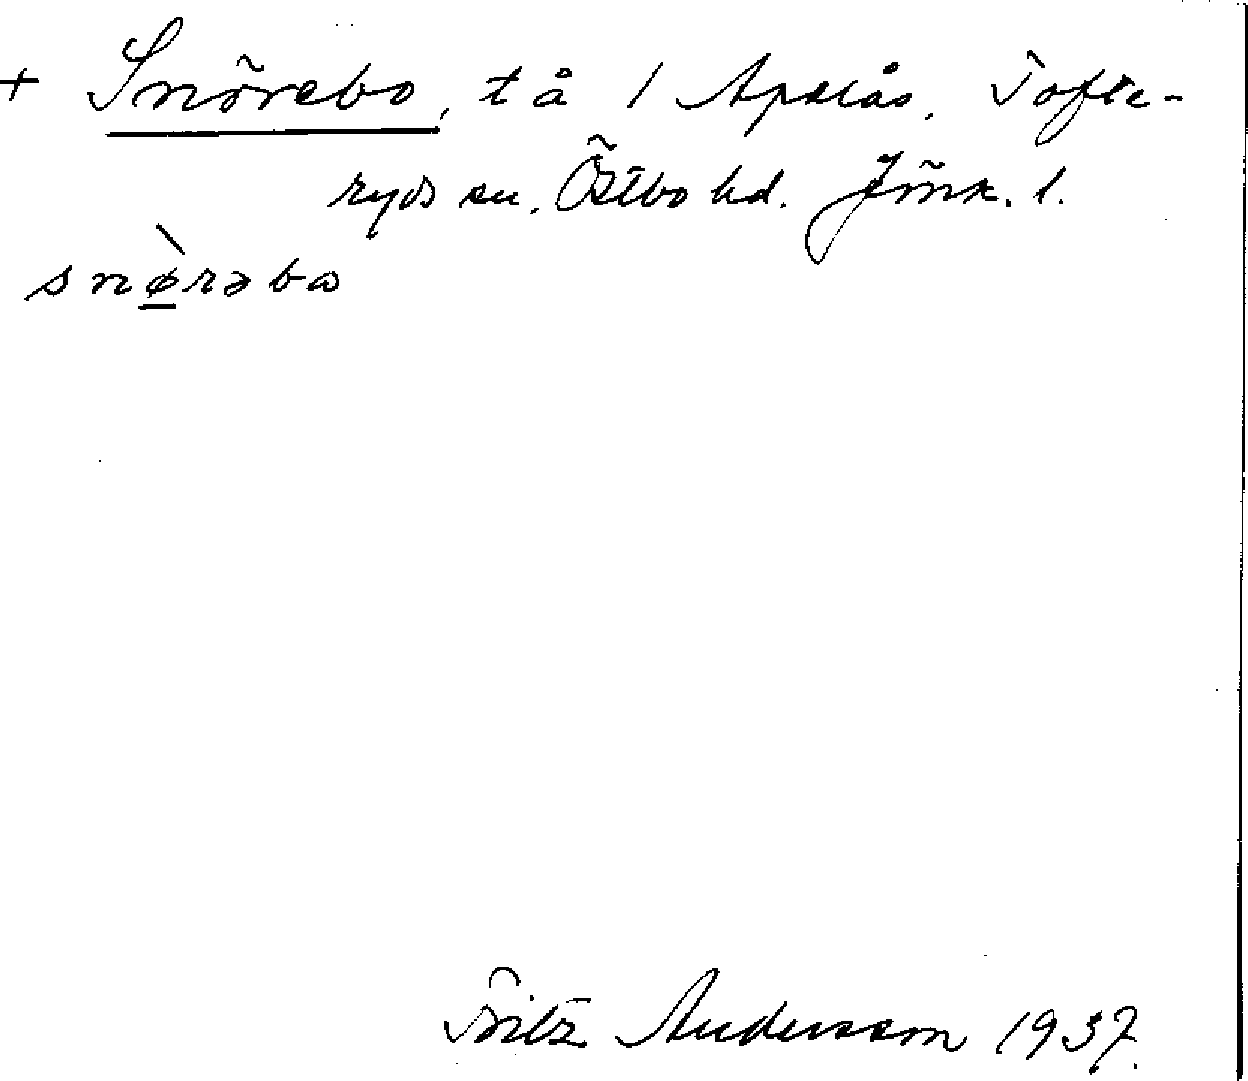 + Snörebo, t å 1 Apslås. Tofte-
ryds sn. Östbo hd. Jönk. l.
snø̀rəbo
Fritz Andersson 1937.